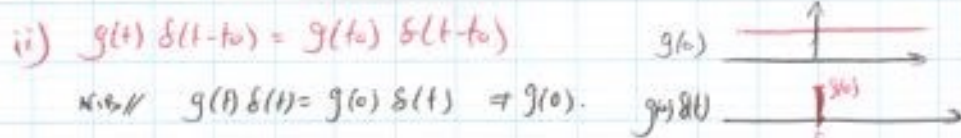 ii) g(t) δ(t-t₀) = g(t₀) δ(t-t₀)
N.B// g(t) δ(t) = g(0) δ(t) ⇒ g(0).
g(0)
g(0) δ(t)
g(0)